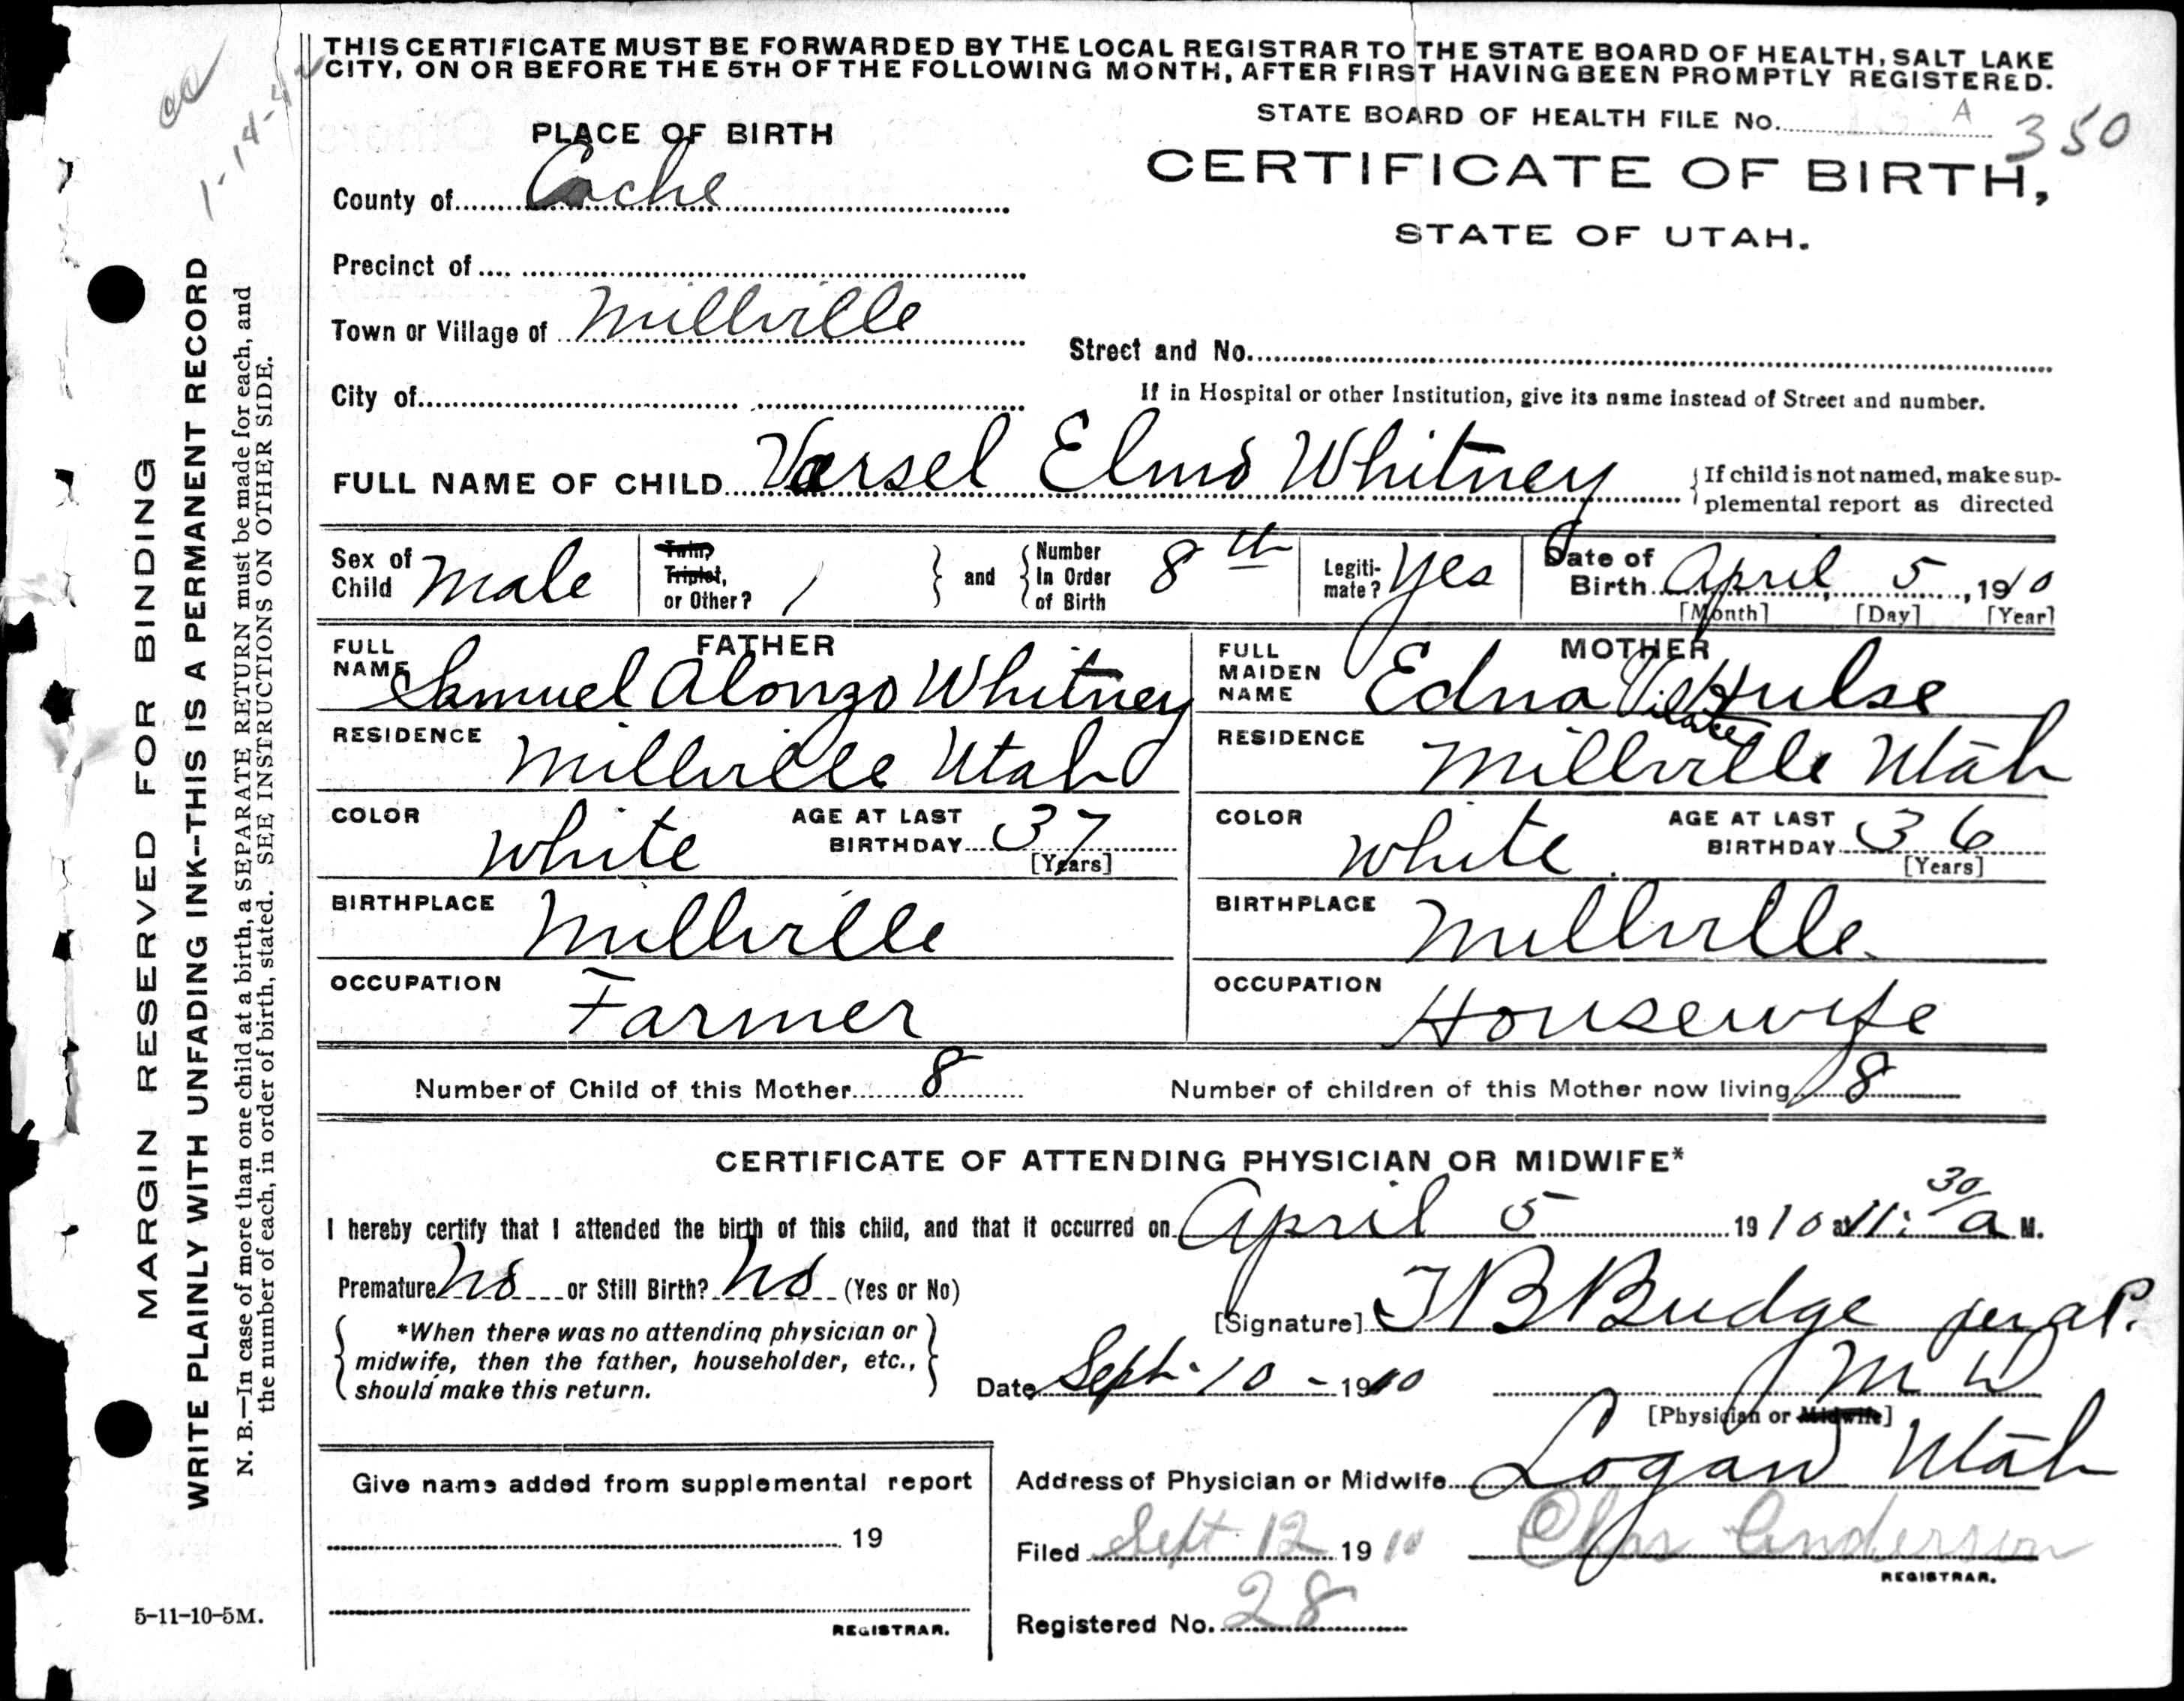 THIS CERTIFICATE MUST BE FORWARDED BY THE LOCAL REGISTRAR TO THE STATE BOARD OF HEALTH, SALT LAKE
CITY, ON OR BEFORE THE 5TH OF THE FOLLOWING MONTH, AFTER FIRST HAVING BEEN PROMPTLY REGISTERED.
1-14-42
STATE BOARD OF HEALTH FILE No. A 350
PLACE OF BIRTH
CERTIFICATE OF BIRTH,
STATE OF UTAH.
County of Cache
Precinct of
Town or Village of Millville
Street and No.
City of
If in Hospital or other Institution, give its name instead of Street and number.
FULL NAME OF CHILD Varsel Elmo Whitney
If child is not named, make sup-
plemental report as directed
Sex of Child Male
Twin, Triplet, or Other? 1 and Number In Order of Birth 8th
Legiti-mate? Yes
Date of Birth April 5, 1910
[Month] [Day] [Year]
FATHER
FULL NAME Samuel Alonzo Whitney
RESIDENCE Millville Utah
COLOR White AGE AT LAST BIRTHDAY 37
[Years]
BIRTHPLACE Millville
OCCUPATION Farmer
MOTHER
FULL MAIDEN NAME Edna Vilate Hulse
RESIDENCE Millville Utah
COLOR White. AGE AT LAST BIRTHDAY 36
[Years]
BIRTHPLACE Millville.
OCCUPATION Housewife
Number of Child of this Mother 8
Number of children of this Mother now living 8
CERTIFICATE OF ATTENDING PHYSICIAN OR MIDWIFE*
I hereby certify that I attended the birth of this child, and that it occurred on April 5 1910 at 11:30 a M.
Premature No or Still Birth? No (Yes or No)
[Signature] T B Budge per a P.
*When there was no attending physician or
midwife, then the father, householder, etc.,
should make this return.
Date Sept. 10 - 1910
M D
[Physician or Midwife]
Give name added from supplemental report
19
REGISTRAR.
Address of Physician or Midwife Logan Utah
Filed Sept 12 1910 Chas Anderson
REGISTRAR.
Registered No. 28
MARGIN RESERVED FOR BINDING
WRITE PLAINLY WITH UNFADING INK--THIS IS A PERMANENT RECORD
N. B.—In case of more than one child at a birth, a SEPARATE RETURN must be made for each, and
the number of each, in order of birth, stated. SEE INSTRUCTIONS ON OTHER SIDE.
5-11-10-5M.